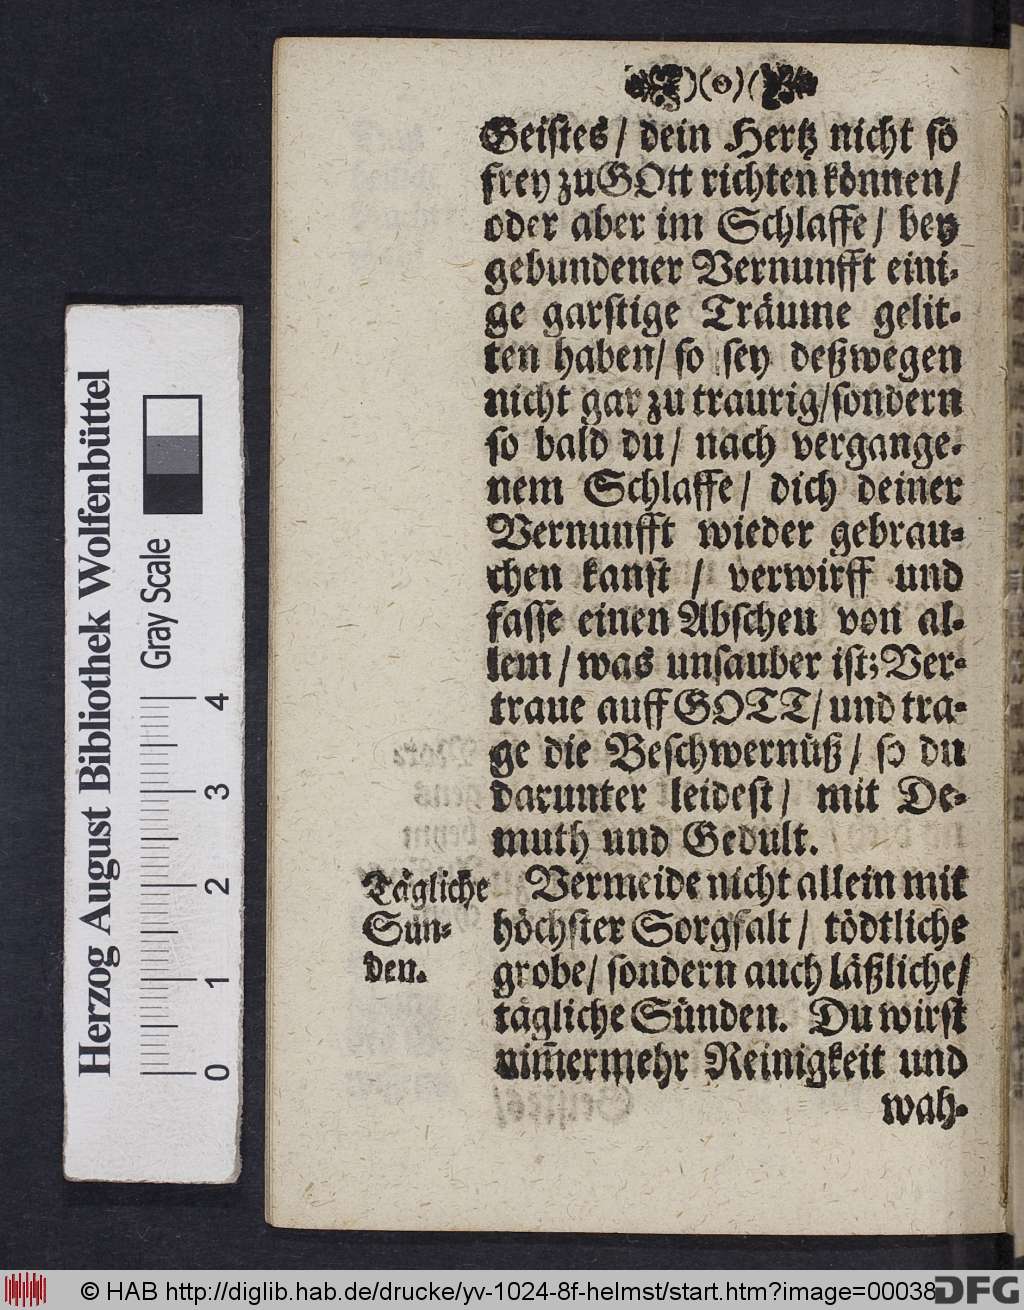 )(o)(
Geistes / dein Hertz nicht so
frey zu GOtt richten können /
oder aber im Schlaffe / bey
gebundener Vernunfft eini-
ge garstige Träume gelit-
ten haben / so sey deßwegen
nicht gar zu traurig / sondern
so bald du / nach vergange-
nem Schlaffe / dich deiner
Vernunfft wieder gebrau-
chen kanst / verwirff und
fasse einen Abscheu von al-
lem / was unsauber ist; Ver-
traue auff GOTT / und tra-
ge die Beschwernüß / so du
darunter leidest / mit De-
muth und Gedult.
Tägliche
Sün-
den.
Vermeide nicht allein mit
höchster Sorgfalt / tödtliche
grobe / sondern auch läßliche /
tägliche Sünden. Du wirst
nim̄ermehr Reinigkeit und
wah-
Herzog August Bibliothek Wolfenbüttel
Gray Scale
0 1 2 3 4
© HAB http://diglib.hab.de/drucke/yv-1024-8f-helmst/start.htm?image=00038
DFG